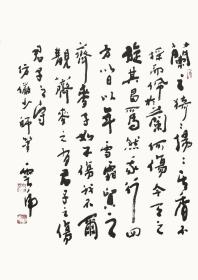 蘭之猗〻揚〻其香不
採而佩於蘭何傷今天之
旋其曷為然我行四
方以日以年雪霜貿〻
薺麥子如不傷我不爾
覯薺麥之有君子之傷
君子之守